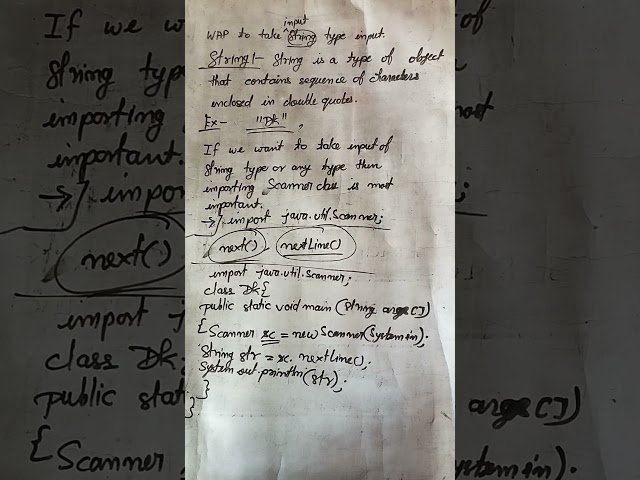 input
WAP to take string type input
String:- String is a type of object
that contains sequence of characters
enclosed in double quotes.
Ex- "Dk",
If we want to take input of
String type or any type then
importing Scanner class is most
important.
→ import java.util.Scanner;
next() nextLine()
import java.util.Scanner;
class Dk{
public static void main (String args[])
{ Scanner sc = new Scanner(System.in);
String str = sc. nextLine();
System.out.println(str);
}
}